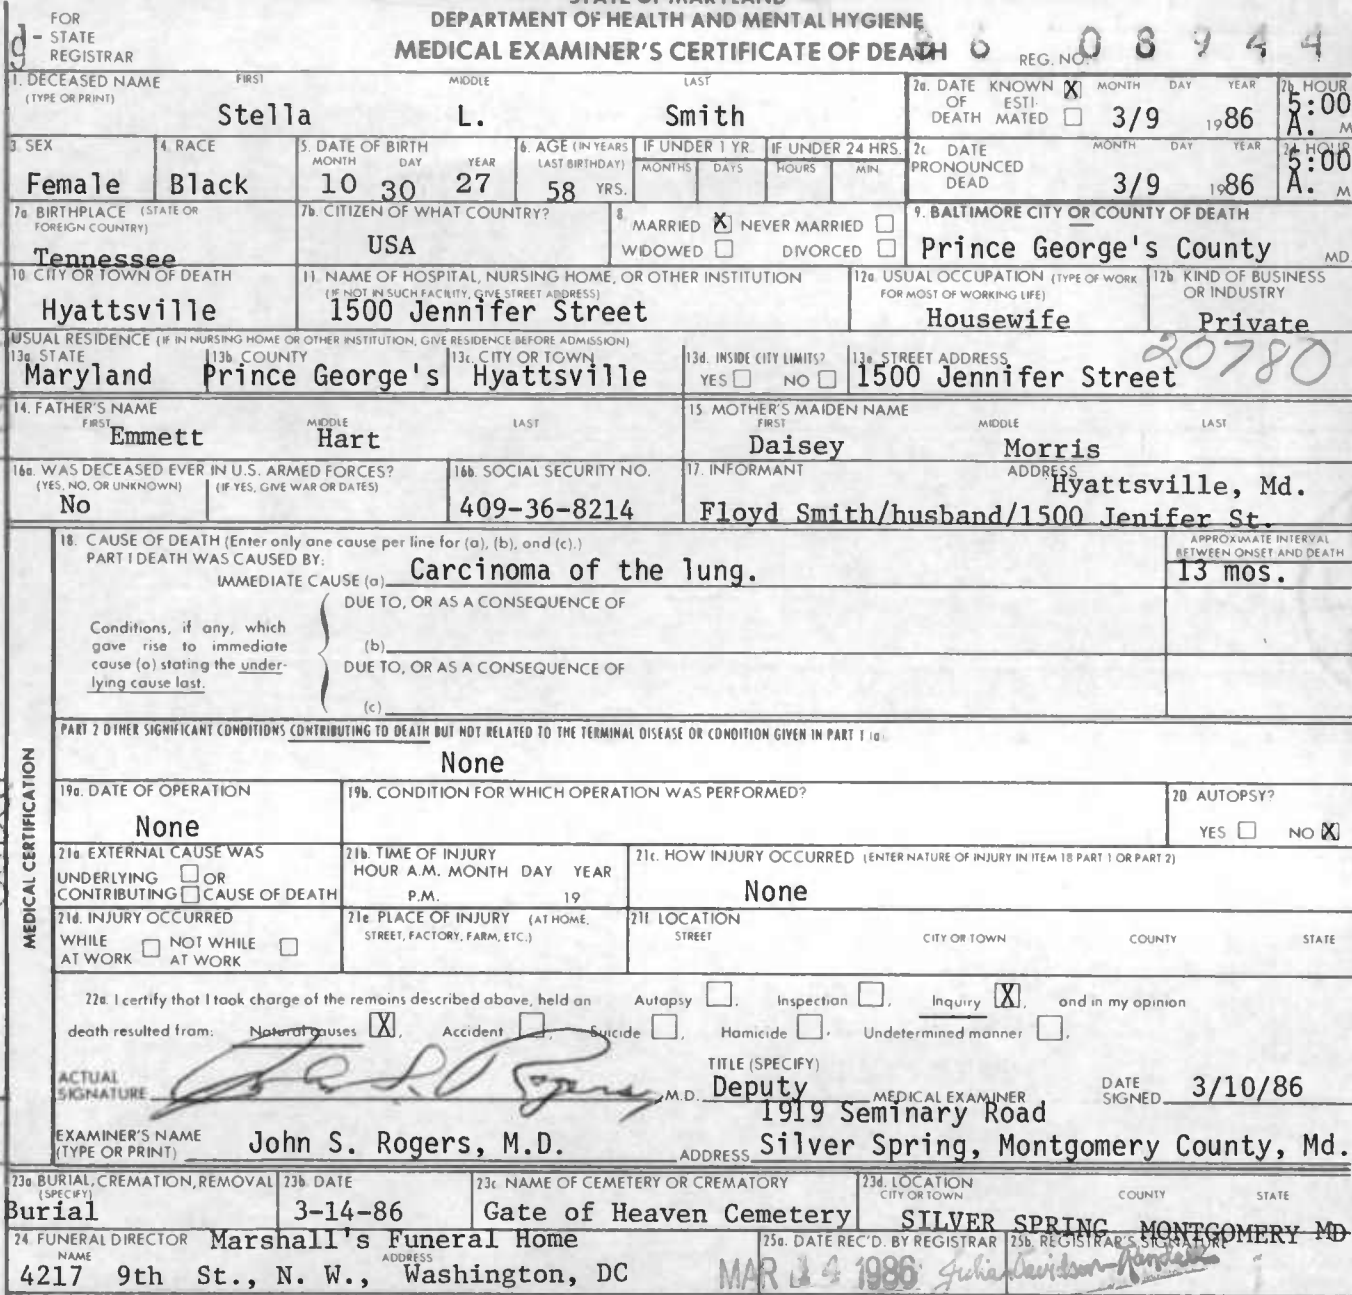 STATE OF MARYLAND
DEPARTMENT OF HEALTH AND MENTAL HYGIENE
MEDICAL EXAMINER'S CERTIFICATE OF DEATH
FOR
d - STATE
REGISTRAR
REG. NO. 08944
1. DECEASED NAME FIRST MIDDLE LAST
(TYPE OR PRINT)
Stella L. Smith
2a. DATE KNOWN X MONTH DAY YEAR
OF ESTI-
DEATH MATED 3/9 1986
2b. HOUR
5:00
A. M
3 SEX
Female
4. RACE
Black
5. DATE OF BIRTH
MONTH DAY YEAR
10 30 27
6. AGE (IN YEARS
LAST BIRTHDAY)
58 YRS.
IF UNDER 1 YR.
MONTHS DAYS
IF UNDER 24 HRS.
HOURS MIN.
2c DATE MONTH DAY YEAR
PRONOUNCED
DEAD 3/9 1986
2d HOUR
5:00
A. M
7a BIRTHPLACE (STATE OR
FOREIGN COUNTRY)
Tennessee
7b. CITIZEN OF WHAT COUNTRY?
USA
8. MARRIED X NEVER MARRIED
WIDOWED DIVORCED
9. BALTIMORE CITY OR COUNTY OF DEATH
Prince George's County MD
10 CITY OR TOWN OF DEATH
Hyattsville
11. NAME OF HOSPITAL, NURSING HOME, OR OTHER INSTITUTION
(IF NOT IN SUCH FACILITY, GIVE STREET ADDRESS)
1500 Jennifer Street
12a. USUAL OCCUPATION (TYPE OF WORK
FOR MOST OF WORKING LIFE)
Housewife
12b. KIND OF BUSINESS
OR INDUSTRY
Private
USUAL RESIDENCE (IF IN NURSING HOME OR OTHER INSTITUTION, GIVE RESIDENCE BEFORE ADMISSION)
13a STATE
Maryland
13b COUNTY
Prince George's
13c. CITY OR TOWN
Hyattsville
13d. INSIDE CITY LIMITS?
YES NO
13e STREET ADDRESS
1500 Jennifer Street 20780
14. FATHER'S NAME
FIRST MIDDLE LAST
Emmett Hart
15. MOTHER'S MAIDEN NAME
FIRST MIDDLE LAST
Daisey Morris
16a. WAS DECEASED EVER IN U.S. ARMED FORCES?
(YES, NO, OR UNKNOWN) (IF YES, GIVE WAR OR DATES)
No
16b. SOCIAL SECURITY NO.
409-36-8214
17. INFORMANT ADDRESS
Hyattsville, Md.
Floyd Smith/husband/1500 Jenifer St.
MEDICAL CERTIFICATION
18. CAUSE OF DEATH (Enter only one cause per line for (a), (b), and (c).)
PART I DEATH WAS CAUSED BY:
IMMEDIATE CAUSE (a) Carcinoma of the lung.
APPROXIMATE INTERVAL
BETWEEN ONSET AND DEATH
13 mos.
DUE TO, OR AS A CONSEQUENCE OF
Conditions, if any, which
gave rise to immediate
cause (a) stating the under-
lying cause last.
(b)
DUE TO, OR AS A CONSEQUENCE OF
(c)
PART 2 OTHER SIGNIFICANT CONDITIONS CONTRIBUTING TO DEATH BUT NOT RELATED TO THE TERMINAL DISEASE OR CONDITION GIVEN IN PART I (a)
None
19a. DATE OF OPERATION
None
19b. CONDITION FOR WHICH OPERATION WAS PERFORMED?
20 AUTOPSY?
YES NO X
21a EXTERNAL CAUSE WAS
UNDERLYING OR
CONTRIBUTING CAUSE OF DEATH
21b. TIME OF INJURY
HOUR A.M. MONTH DAY YEAR
P.M. 19
21c. HOW INJURY OCCURRED (ENTER NATURE OF INJURY IN ITEM 18 PART 1 OR PART 2)
None
21d. INJURY OCCURRED
WHILE NOT WHILE
AT WORK AT WORK
21e. PLACE OF INJURY (AT HOME,
STREET, FACTORY, FARM, ETC.)
21f. LOCATION
STREET CITY OR TOWN COUNTY STATE
22a. I certify that I took charge of the remains described above, held an Autopsy , Inspection , Inquiry X , and in my opinion
death resulted from: Natural causes X , Accident , Suicide , Homicide , Undetermined manner .
ACTUAL
SIGNATURE John S. Rogers M.D.
TITLE (SPECIFY)
Deputy MEDICAL EXAMINER
DATE
SIGNED 3/10/86
1919 Seminary Road
EXAMINER'S NAME
(TYPE OR PRINT) John S. Rogers, M.D.
ADDRESS Silver Spring, Montgomery County, Md.
23a BURIAL, CREMATION, REMOVAL
(SPECIFY)
Burial
23b. DATE
3-14-86
23c NAME OF CEMETERY OR CREMATORY
Gate of Heaven Cemetery
23d. LOCATION
CITY OR TOWN COUNTY STATE
SILVER SPRING MONTGOMERY MD
24 FUNERAL DIRECTOR Marshall's Funeral Home
NAME ADDRESS
4217 9th St., N. W., Washington, DC
25a. DATE REC'D. BY REGISTRAR
MAR 14 1986
25b. REGISTRAR'S SIGNATURE
Julia Davidson-Randall